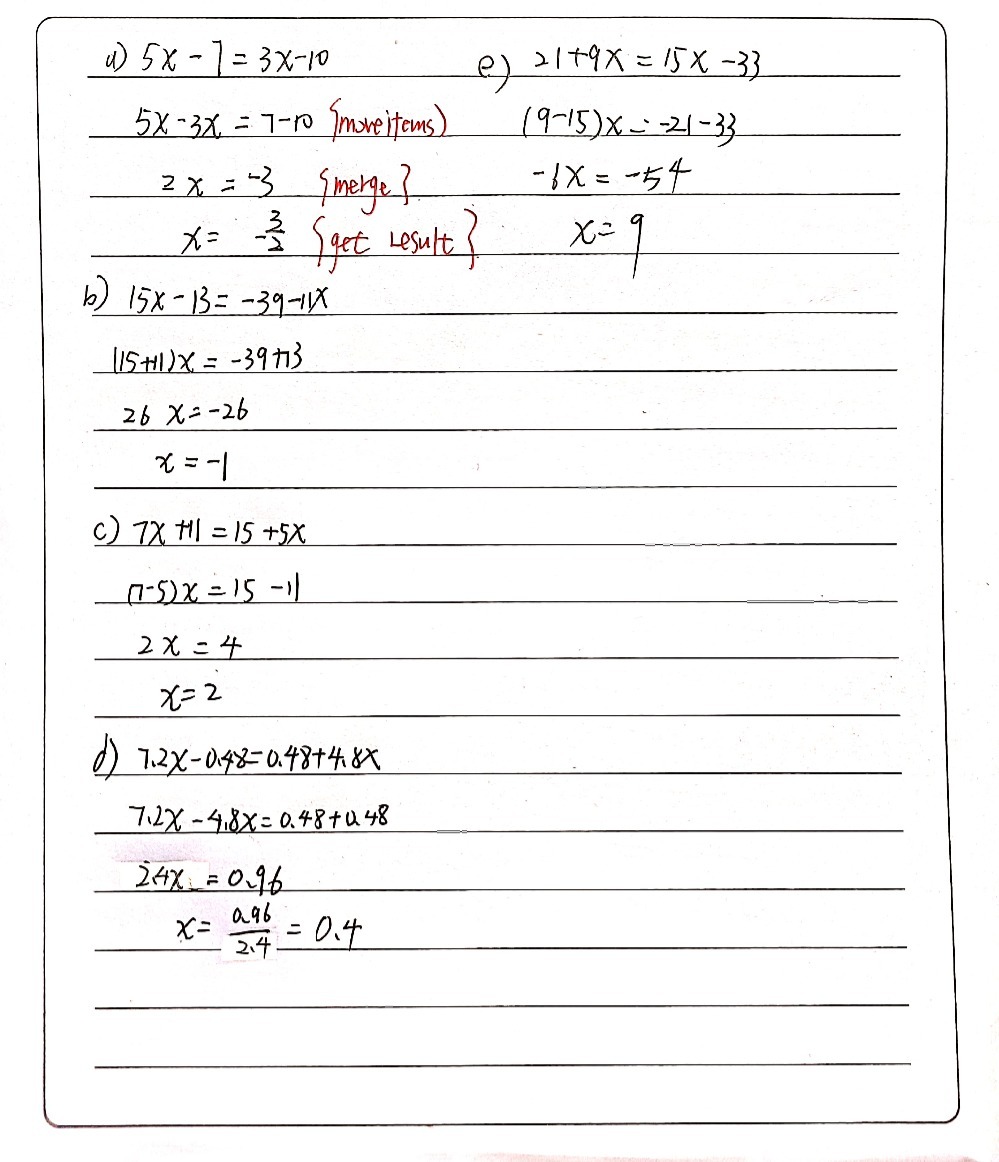 a) 5x - 7 = 3x-10
5x-3x = 7-10 {move items)
2x = -3 {merge}
x = -3/2 {get result}
e) 21+9x = 15x -33
(9-15)x = -21-33
-6x = -54
x= 9
b) 15x-13= -39-11x
(15+11)x = -39+13
26 x = -26
x = -1
c) 7x +11 = 15 +5x
(7-5)x = 15 -11
2x = 4
x= 2
d) 7.2x-0.48=0.48+4.8x
7.2x-4.8x=0.48+0.48
2.4x = 0.96
x= 0.96/2.4 = 0.4